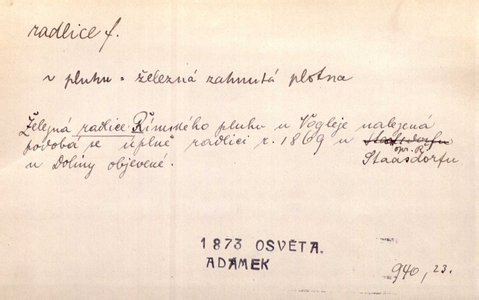 radlice f.
v pluhu = železná zahnutá plotna
Železná radlice Římského pluhu u Vogleje nalezená
podobá se úplně radlici r. 1869 u Staatsdorfu
opr. R.
u Doliny objevené. Staasdorfu
1873 OSVĚTA.
ADÁMEK
940, 23.